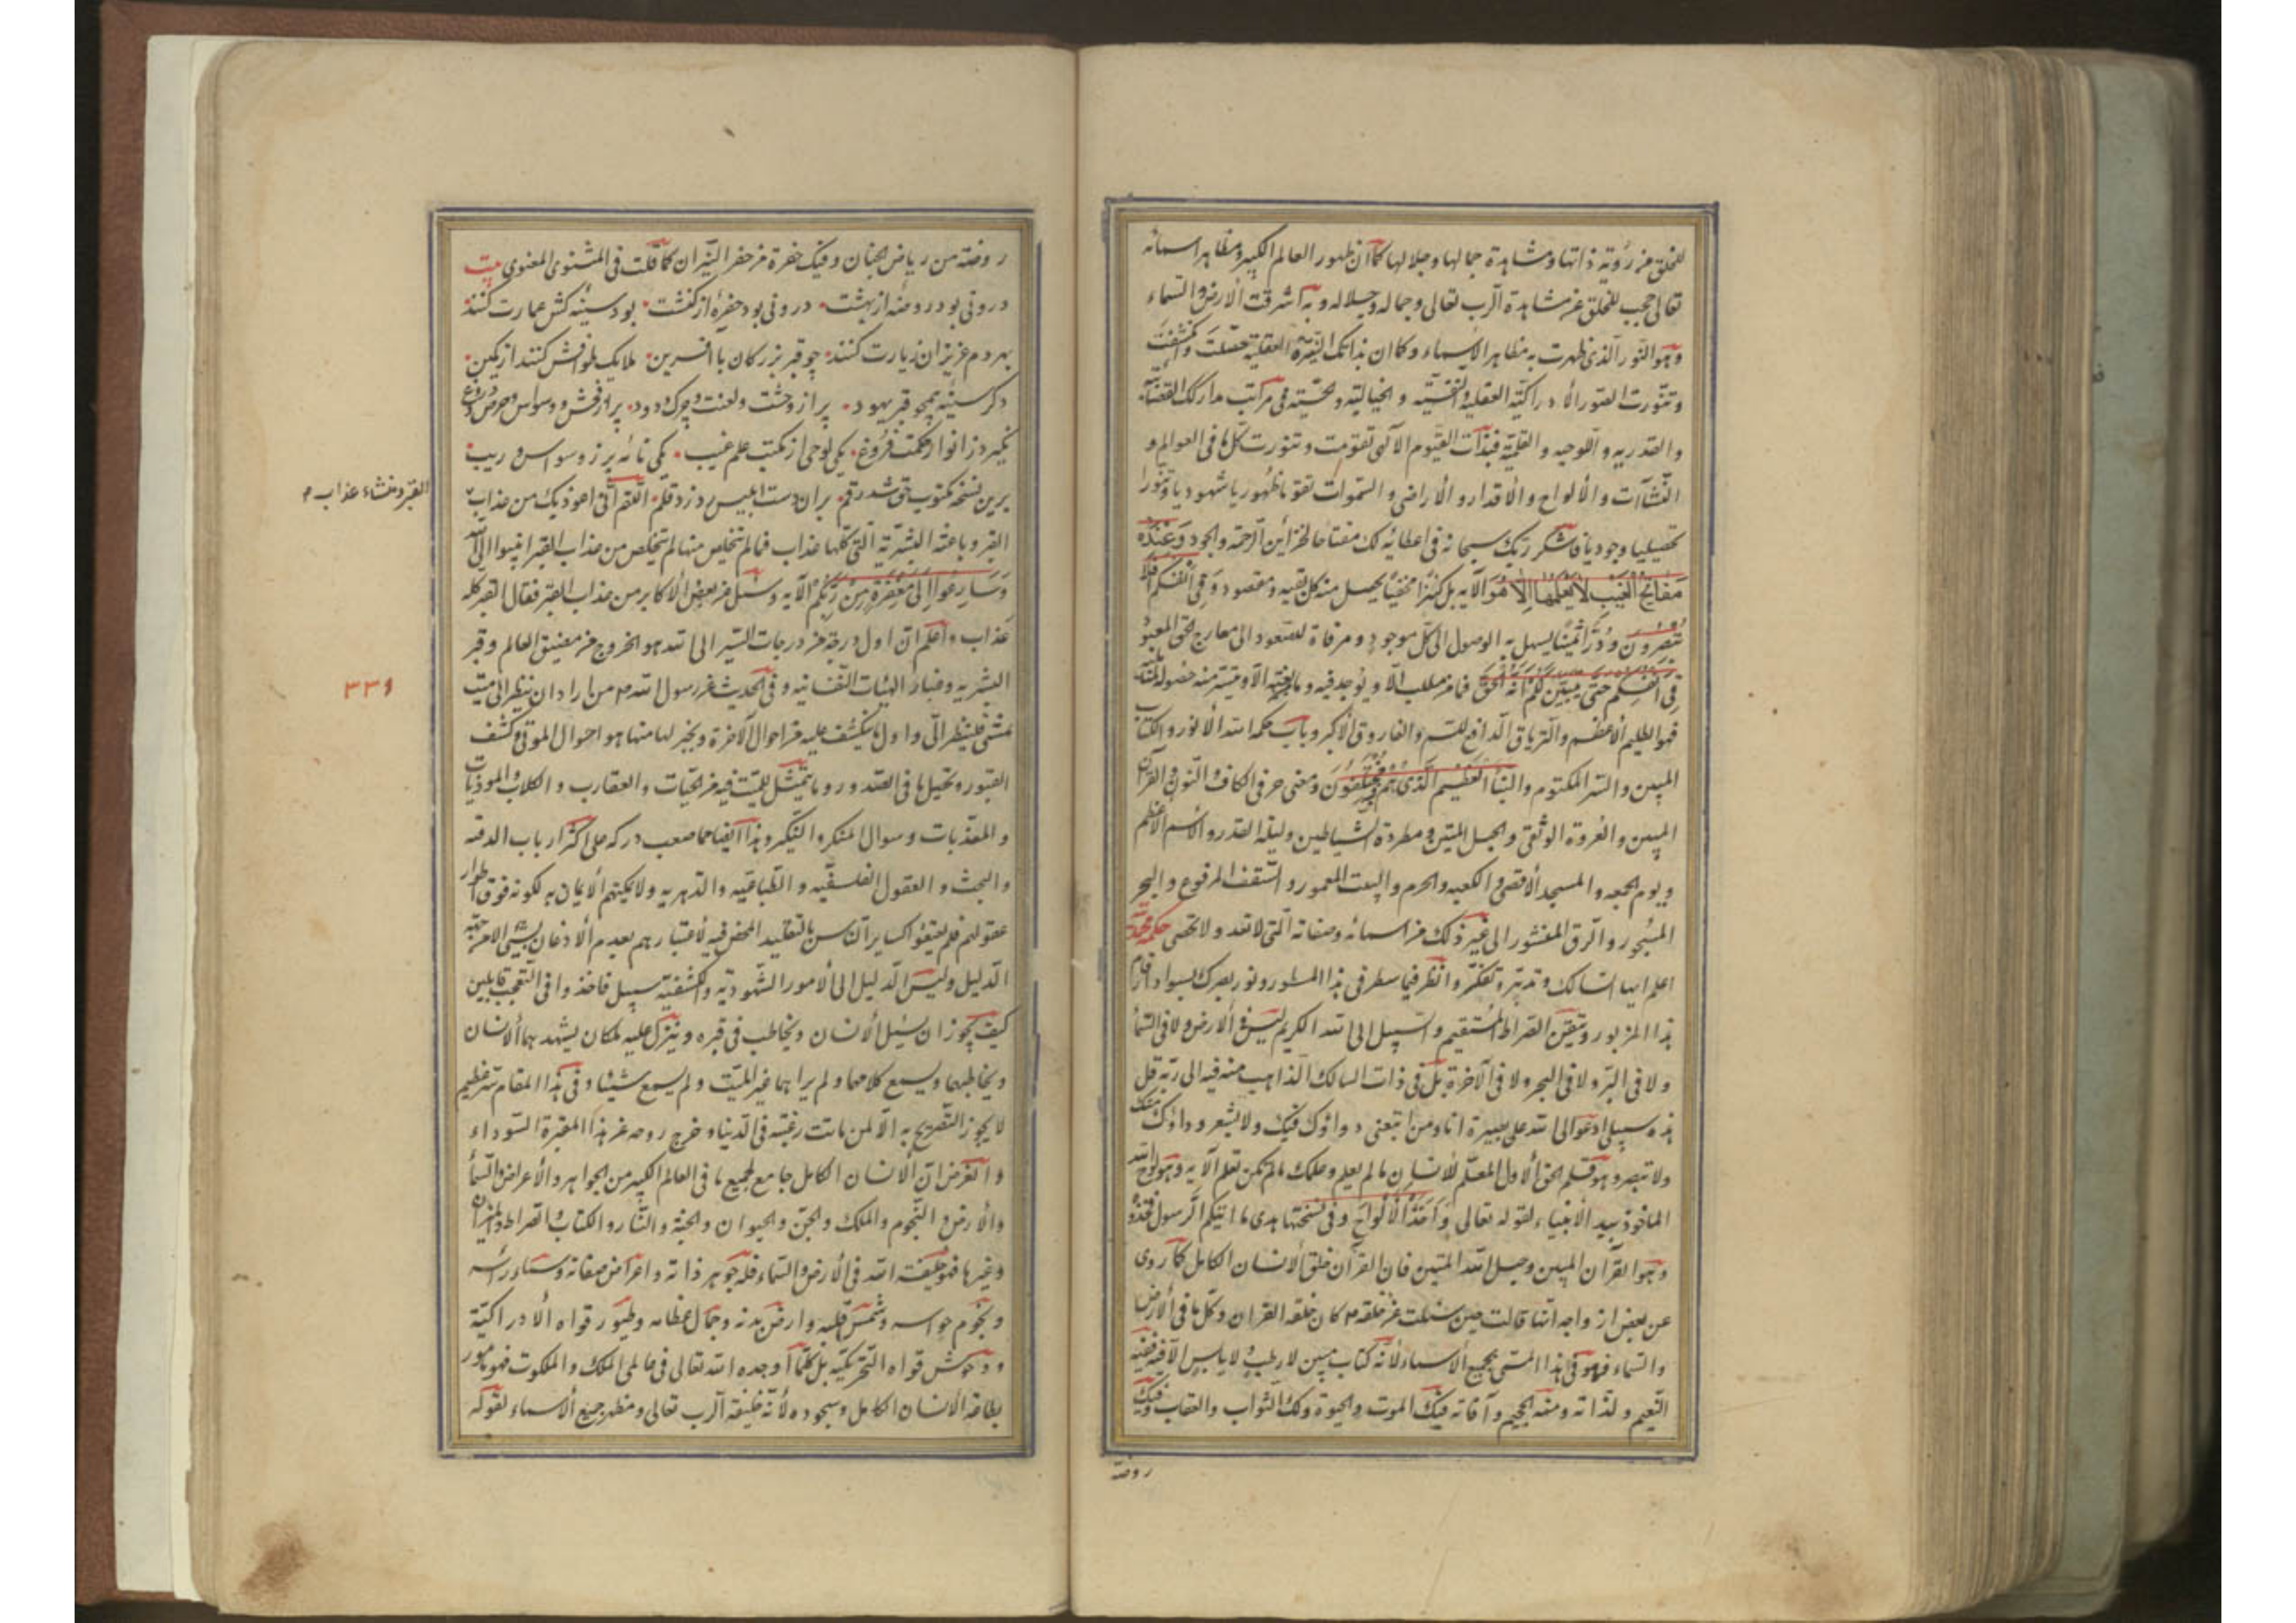 للخلق عن رؤية ذاتها ومشاهدة جمالها وجلالها كما ان ظهور العالم الكبير ومظاهر اسمائه
تعالى حجب للخلق عن مشاهدة الرب تعالى وجماله وجلاله وبه اشرقت الارض والسماء
وهو النور الذى ظهرت به مظاهر الاسماء وكما ان بذاتك العقلية حصلت وانكشفت
وتنورت الصور الادراكية العقلية والنفسية والخيالية والحسية فى مراتب مداركك القضائية
والقدرية واللوحيه والقلمية فبذات القيوم الآلهى تقومت وتنورت كلها فى العوالم و
النشآت والألواح والأقدار والأراضى والسموات تقوما ظهوريا شهوديا وتنورا
تحصيليا وجوديا فاشكر ربك سبحانه فى اعطائه لك مفتاحا لخزائن الرحمة والجود وعنده
مفاتح الغيب لا يعلمها إلا هو الآيه بل كنزا مخفيا يحصل منه كل بقيه ومقصود وفى انفسكم افلا
تبصرون ودرا ثمينا يسهل به الوصول الى كل موجود ومرقاة للصعود الى معارج الحق المعبود
فى انفسهم حتى يتبين لهم أنه الحق فما من مطلب الا ويوجد فيه وما بغية الا وميسر منه حصوله
فهو الطلسم الأعظم والترياق الدافع للسم والفاروق الأكبر وباب حكمة الله الأنور والكتاب
المبين والسر المكتوم والنبأ العظيم الذى هم فيه مختلفون ومعنى حرفى الكاف والنون والقرآن
المبين والعروة الوثقى والحبل المتين ومطردة الشياطين وليلة القدر والاسم الأعظم
ويوم الجمعه والمسجد الأقصى والكعبه والحرم والبيت المعمور والسقف المرفوع والبحر
المسجور والرق المنشور الى غير ذلك من اسمائه وصفاته التى لا تعد ولا تحصى حكمة محمدية
اعلم ايها السالك وتدبر وتفكر وانظر فيما سطر فى هذا المسطور ونور بصرك بسواد ارقام
هذا المزبور وتيقن الصراط المستقيم والسبيل الى الله الكريم ليس فى الأرض ولا فى السماء
ولا فى البر ولا فى البحر ولا فى الآخرة بل فى ذات السالك الذاهب منه فيه الى ربه قل
هذه سبيلى ادعو الى الله على بصيرة انا ومن اتبعنى دواؤك فيك ولا تشعر وداؤك منك
ولا تبصر وهو قلم الحق الأول المعلم للانسان ما لم يعلم وعلمك ما لم تكن تعلم الآيه وهو لوح الله
المأخوذ بيد الأنبياء لقوله تعالى وأخذ الألواح وفى نسختها هدى ما اتيكم الرسول فخذوه
وهو القرآن المبين وحبل الله المتين فان القرآن خلق الانسان الكامل كما روى
عن بعض ازواجه انها قالت حين سئلت عن خلقه ص كان خلقه القران وكل ما فى الأرض
والسماء فهو فى هذا المسمى بجميع الأسماء لأنه كتاب مبين لا رطب ولا يابس الا فيه ففيه
النعيم ولذاته ومنه الجحيم وآفاته فيك الموت والحيوة ولك الثواب والعقاب وفيك
روضة
روضة من رياض الجنان وفيك حفرة من حفر النيران كما قلت فى المثنوى المعنوى بيت
درونى بود روضه از بهشت درونى بود حفرهٔ از كنشت بود سينه كش عمارت كنند
بهر دم عزيزان زيارت كنند چو قبر بزركان با افسرين ملايك طوافش كنند از يمين
دكر سينه همچو قبر يهود پر از وحشت ولعنت وچرك ودود پر از فحش ووسواس وحرص ودروغ
نكيرد ز انوار حكمت فروغ يكى لوحى از مكتب علم غيب يكى نامه پر ز وسواس وريب
برين نسخه مكتوب حق شد رقم بران دست ابليس دون زد قلم اللهم انى اعوذ بك من عذاب
القبر وباعثه البشرية التى كلها عذاب فما لم تتخلص منها لم تتخلص من عذاب القبر انيبوا الى الله
وسارعوا إلى مغفرة من ربكم الآيه وسئل عن بعض الأكابر من عذاب القبر فقال القبر كله
القبر ومنشاء عذابه
عذاب واعلم ان اول درجة من درجات السير الى الله هو الخروج من مضيق العالم وقبر
٣٣٩
البشريه وغبار الهيئات النفسانيه وفى الحديث عن رسول الله ص من اراد ان ينظر الى ميت
يمشى فلينظر الى واول ما ينكشف عليه من احوال الآخرة ويخبر لها منها هو احوال الموتى وكشف
القبور وتحيل ما فى الصدور وما يتمثل للميت فيه من الحيات والعقارب والكلاب والموذيات
والمعذبات وسوال المنكر والنكير وهذا ايضا مما صعب دركه على اكثر ارباب الدقه
والبحث والعقول الفلسفيه والطباعيه والدهريه ولا يمكنهم الأيمان به لكونه فوق اطوار
عقولهم فلم يقنعوا كساير الناس بالتقليد المحض فيه لأعتبارهم بعدم الأذعان بشىء الا من جهة
الدليل وليس الدليل الى الأمور الشهوديه والكشفية سبيل فاخذوا فى التعجب قايلين
كيف يجوز ان يسئل الأنسان ويخاطب فى قبره وينزل عليه ملكان يشهد بهما الأنسان
ويخاطبهما ويسمع كلامهما ولم يراهما غير الميت ولم يسمع شيئا وفى هذا المقام سر عظيم
لا يجوز التصريح به الا لمن ماتت رغبته فى الدنيا وخرج روحه عن هذا المقبرة السوداء
والغرض ان الأنسان الكامل جامع لجميع ما فى العالم الكبير من الجواهر والأعراض والسماء
والأرض والنجوم والملك والجن والحيوان والجنة والنار والكتاب والصراط والميزان
وغيرها فهو خليفة الله فى الأرض والسماء فله جوهر ذاته واعراض صفاته وسماء راسه
ونجوم حواسه وشمس قلبه وارض بدنه وجبال عظامه وطيور قواه الأدراكية
ووحوش قواه التحريكية بل كلما أوجده الله تعالى فى عالمى الملك والملكوت فهو مامور
بطاعة الأنسان الكامل وسجوده لأنه خليفة الرب تعالى ومظهر جميع الأسماء لقوله